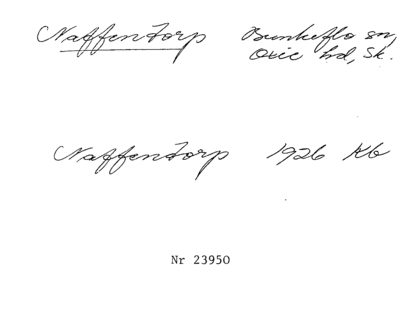 Naffentorp Bunkeflo sn,
Oxie hd, Sk.
Naffentorp 1926 Kb
Nr 23950